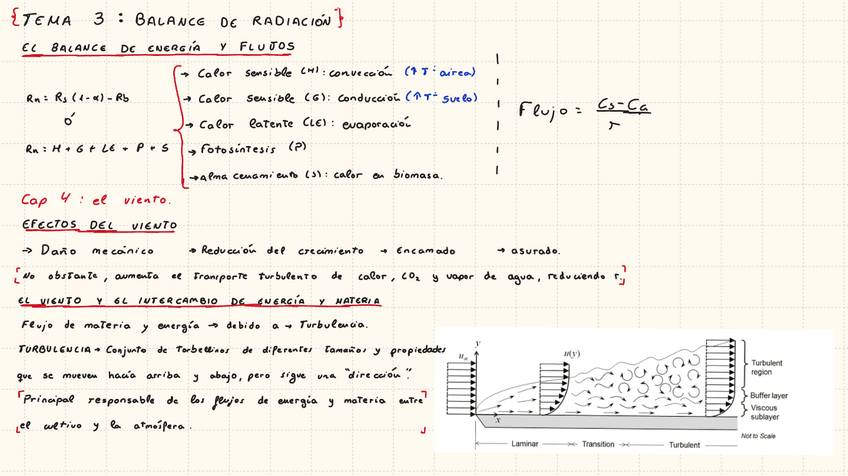 {TEMA 3: BALANCE DE RADIACIÓN}
EL BALANCE DE ENERGÍA Y FLUJOS
→ Calor sensible (H): convección (↑ Tª aérea)
Rn = Rs (1-α) - Rb
→ Calor sensible (G): conducción (↑ Tª suelo)
Ó
→ Calor latente (LE): evaporación
Rn = H + G + LE + P + S
→ Fotosíntesis (P)
→ Almacenamiento (S): calor en biomasa.
Flujo = Cs - Ca / r
Cap 4: el viento.
EFECTOS DEL VIENTO
→ Daño mecánico → Reducción del crecimiento → Encamado → asurado.
[No obstante, aumenta el transporte turbulento de calor, CO₂ y vapor de agua, reduciendo r]
EL VIENTO Y EL INTERCAMBIO DE ENERGÍA Y MATERIA
Flujo de materia y energía → debido a → Turbulencia.
TURBULENCIA → Conjunto de torbellinos de diferentes tamaños y propiedades
que se mueven hacia arriba y abajo, pero sigue una "dirección".
[Principal responsable de los flujos de energía y materia entre
el cultivo y la atmósfera.]
y
u∞
u(y)
x
Turbulent
region
Buffer layer
Viscous
sublayer
Not to Scale
Laminar
Transition
Turbulent